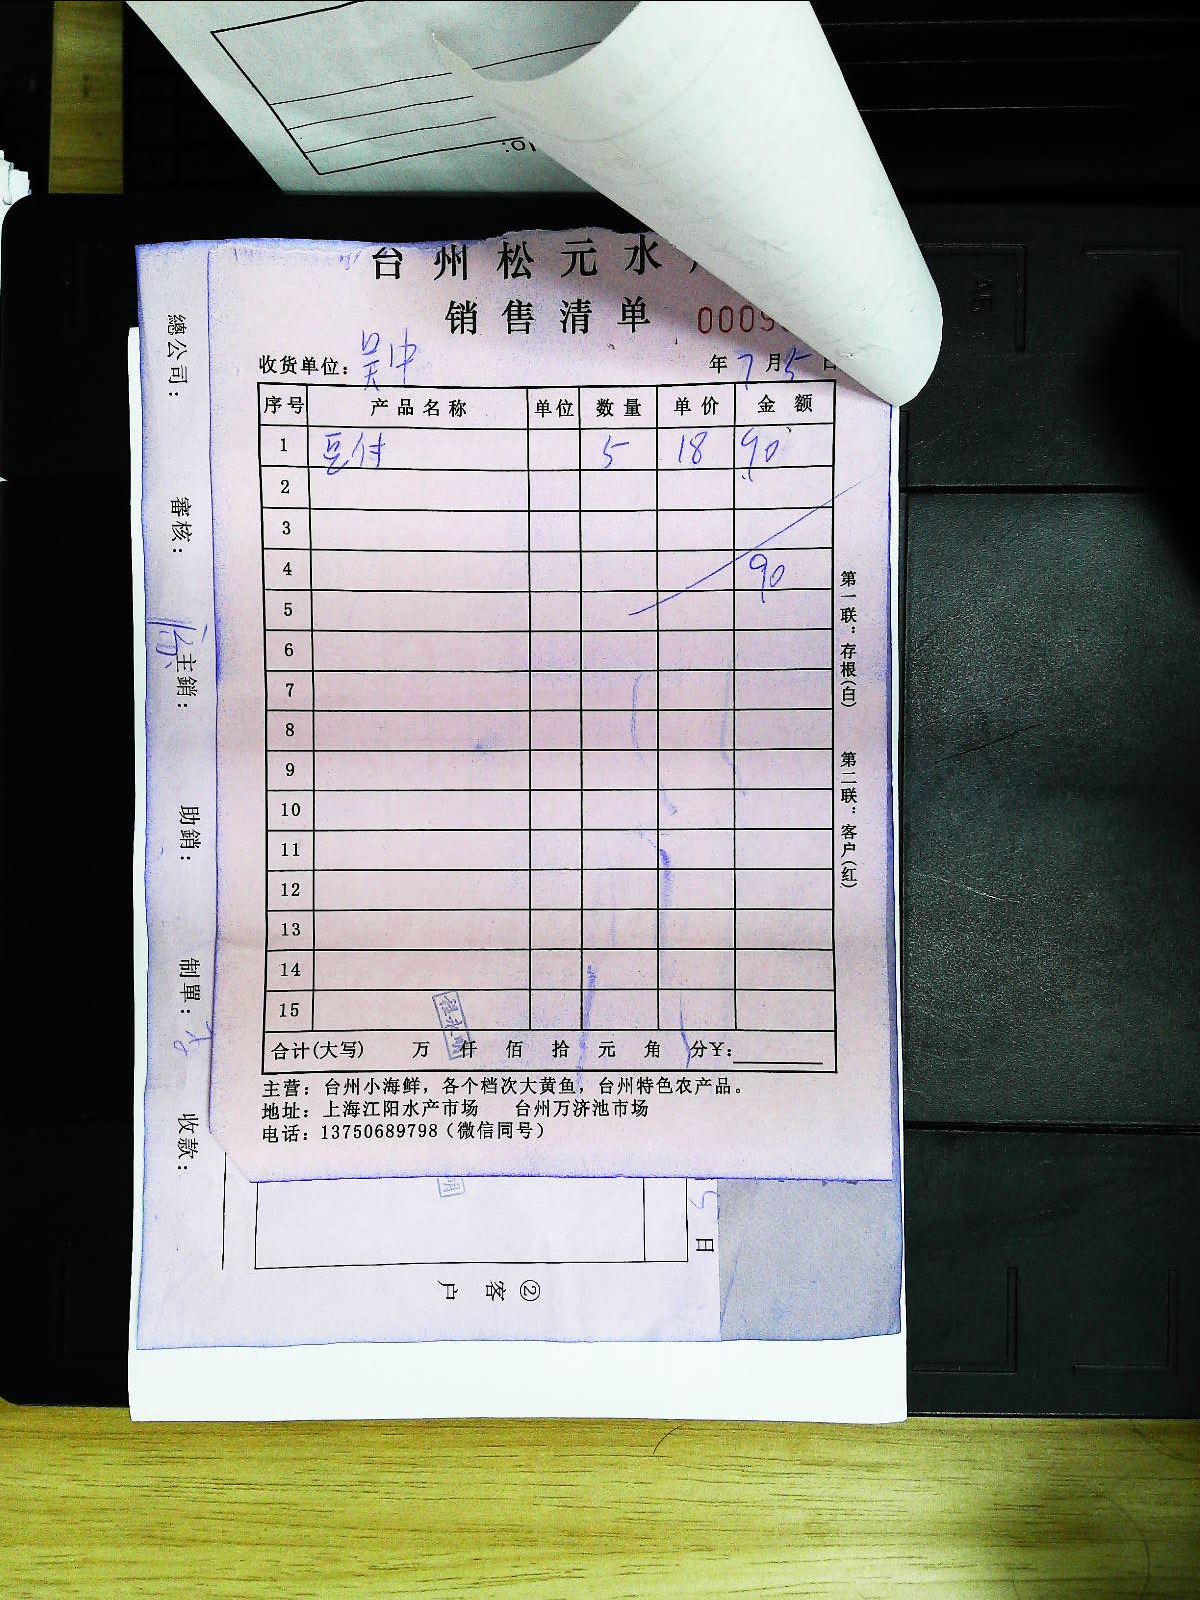 台州松元水
销售清单 0009
收货单位：吴中 年7月5日
序号 产品名称 单位 数量 单价 金额
1 豆付 5 18 90
2
3
4 90
5
6
7
8
9
10
11
12
13
14
15
合计(大写) 万 仟 佰 拾 元 角 分¥：
主营：台州小海鲜，各个档次大黄鱼，台州特色农产品。
地址：上海江阳水产市场 台州万济池市场
电话：13750689798（微信同号）
第一联：存根(白) 第二联：客户(红)
總公司： 審核： 主銷： 助銷： 制單： 收款：
5日
②客户
A5